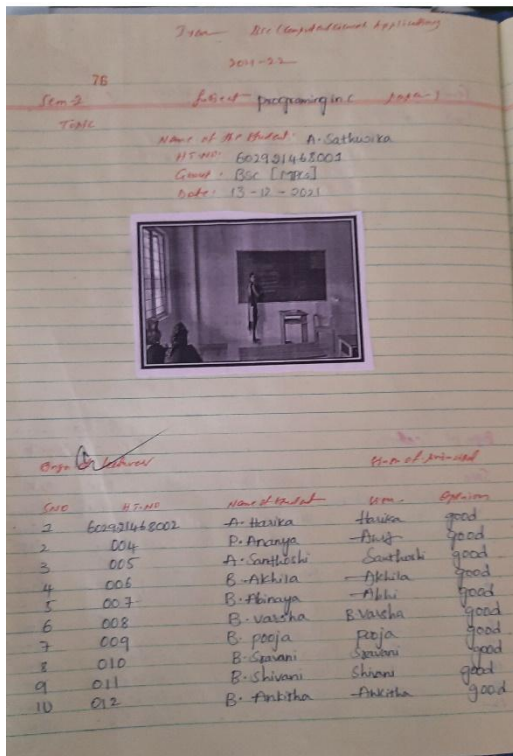 I year BSc (Computer Science Applications)
2021-22
76
Sem-2 Subject programing in C paper-1
Topic
Name of the student: A. Sathwika
HT.NO: 602921468001
Group: BSc [MPCs]
Date: 13-12-2021
Sign of lecturer Sign of principal
SNO HT.NO Name of student Sign Opinion
1 602921468002 A. Harika Harika good
2 004 P. Ananya Anu good
3 005 A. Santhoshi Santhoshi good
4 006 B. Akhila Akhila good
5 007 B. Abinaya Abhi good
6 008 B. Varsha B. Varsha good
7 009 B. pooja pooja good
8 010 B. Sravani Sravani good
9 011 B. Shivani Shivani good
10 012 B. Ankitha Ankitha good